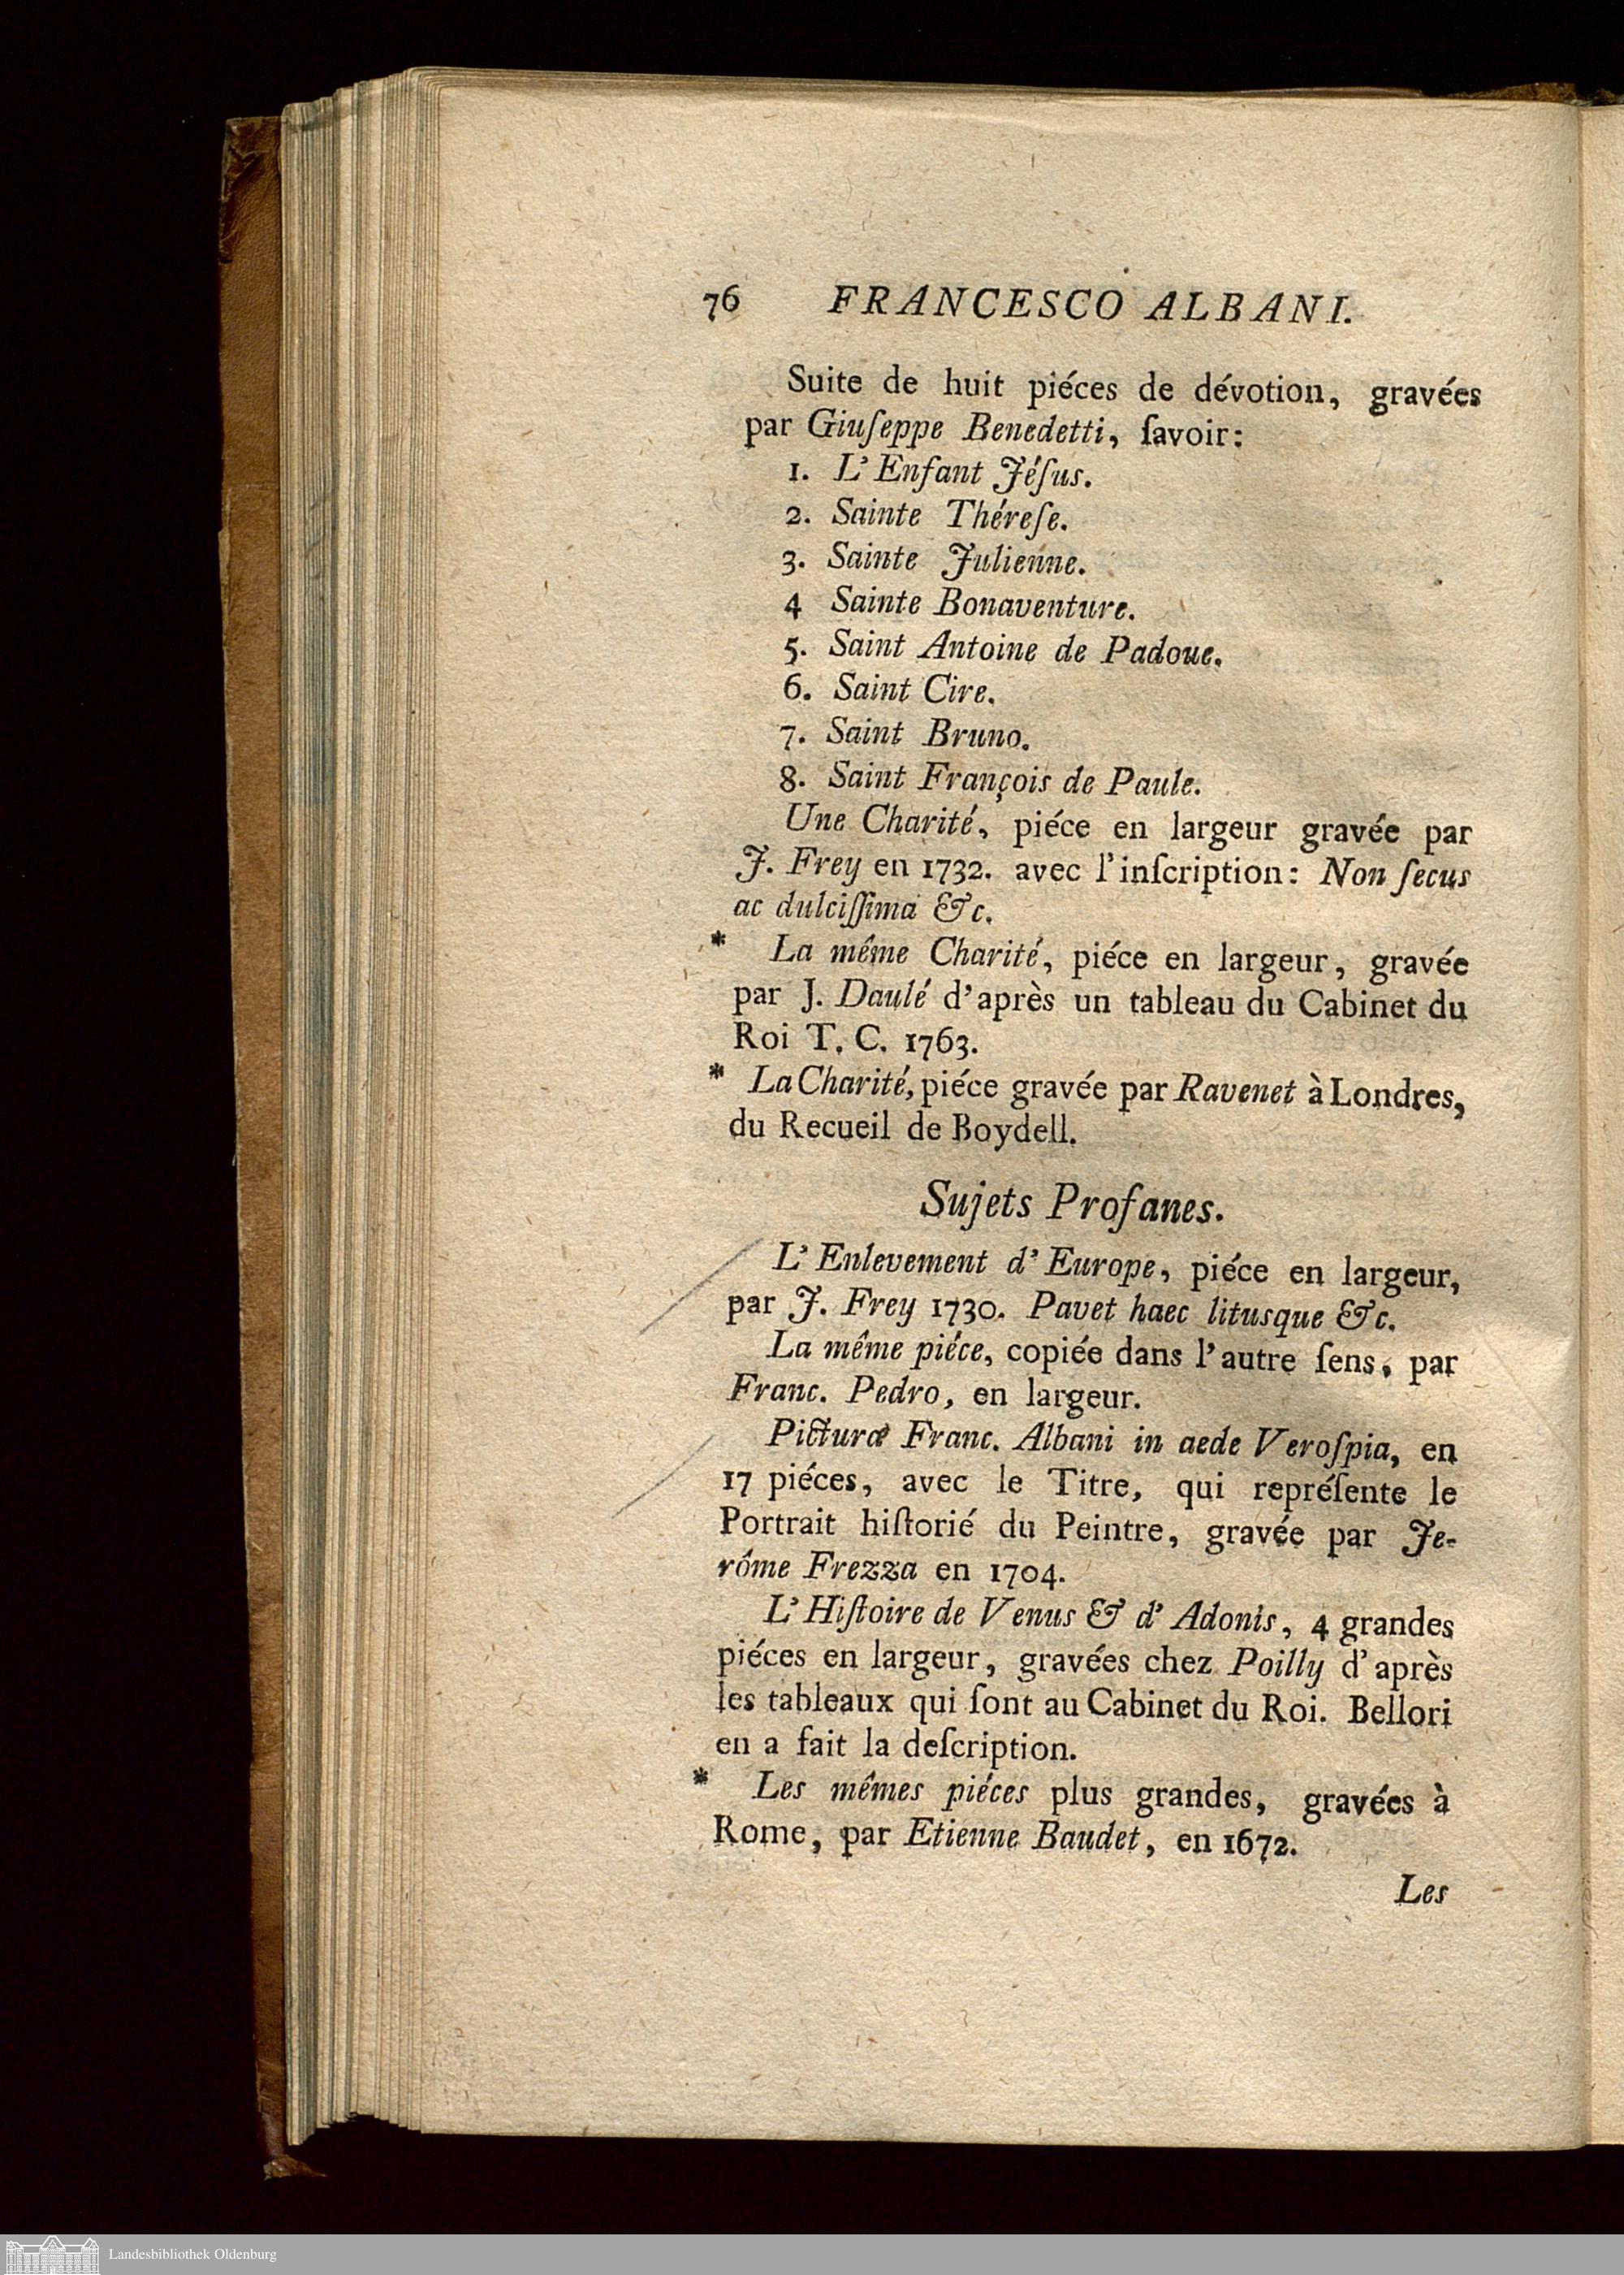 76 FRANCESCO ALBANI.
Suite de huit piéces de dévotion, gravées
par Giuſeppe Benedetti, ſavoir:
1. L'Enfant Jéſus.
2. Sainte Théreſe.
3. Sainte Julienne.
4 Sainte Bonaventure.
5. Saint Antoine de Padoue.
6. Saint Cire.
7. Saint Bruno.
8. Saint François de Paule.
Une Charité, piéce en largeur gravée par
J. Frey en 1732. avec l'inſcription: Non ſecus
ac dulciſſima &c.
* La même Charité, piéce en largeur, gravée
par J. Daulé d'après un tableau du Cabinet du
Roi T. C. 1763.
* La Charité, piéce gravée par Ravenet à Londres,
du Recueil de Boydell.
Sujets Profanes.
L'Enlevement d'Europe, piéce en largeur,
par J. Frey 1730. Pavet haec litusque &c.
La même piéce, copiée dans l'autre ſens, par
Franc. Pedro, en largeur.
Picturæ Franc. Albani in aede Veroſpia, en
17 piéces, avec le Titre, qui repréſente le
Portrait hiſtorié du Peintre, gravée par Je-
rôme Frezza en 1704.
L'Hiſtoire de Venus & d'Adonis, 4 grandes
piéces en largeur, gravées chez Poilly d'après
les tableaux qui ſont au Cabinet du Roi. Bellori
en a fait la deſcription.
* Les mêmes piéces plus grandes, gravées à
Rome, par Etienne Baudet, en 1672.
Les
Landesbibliothek Oldenburg